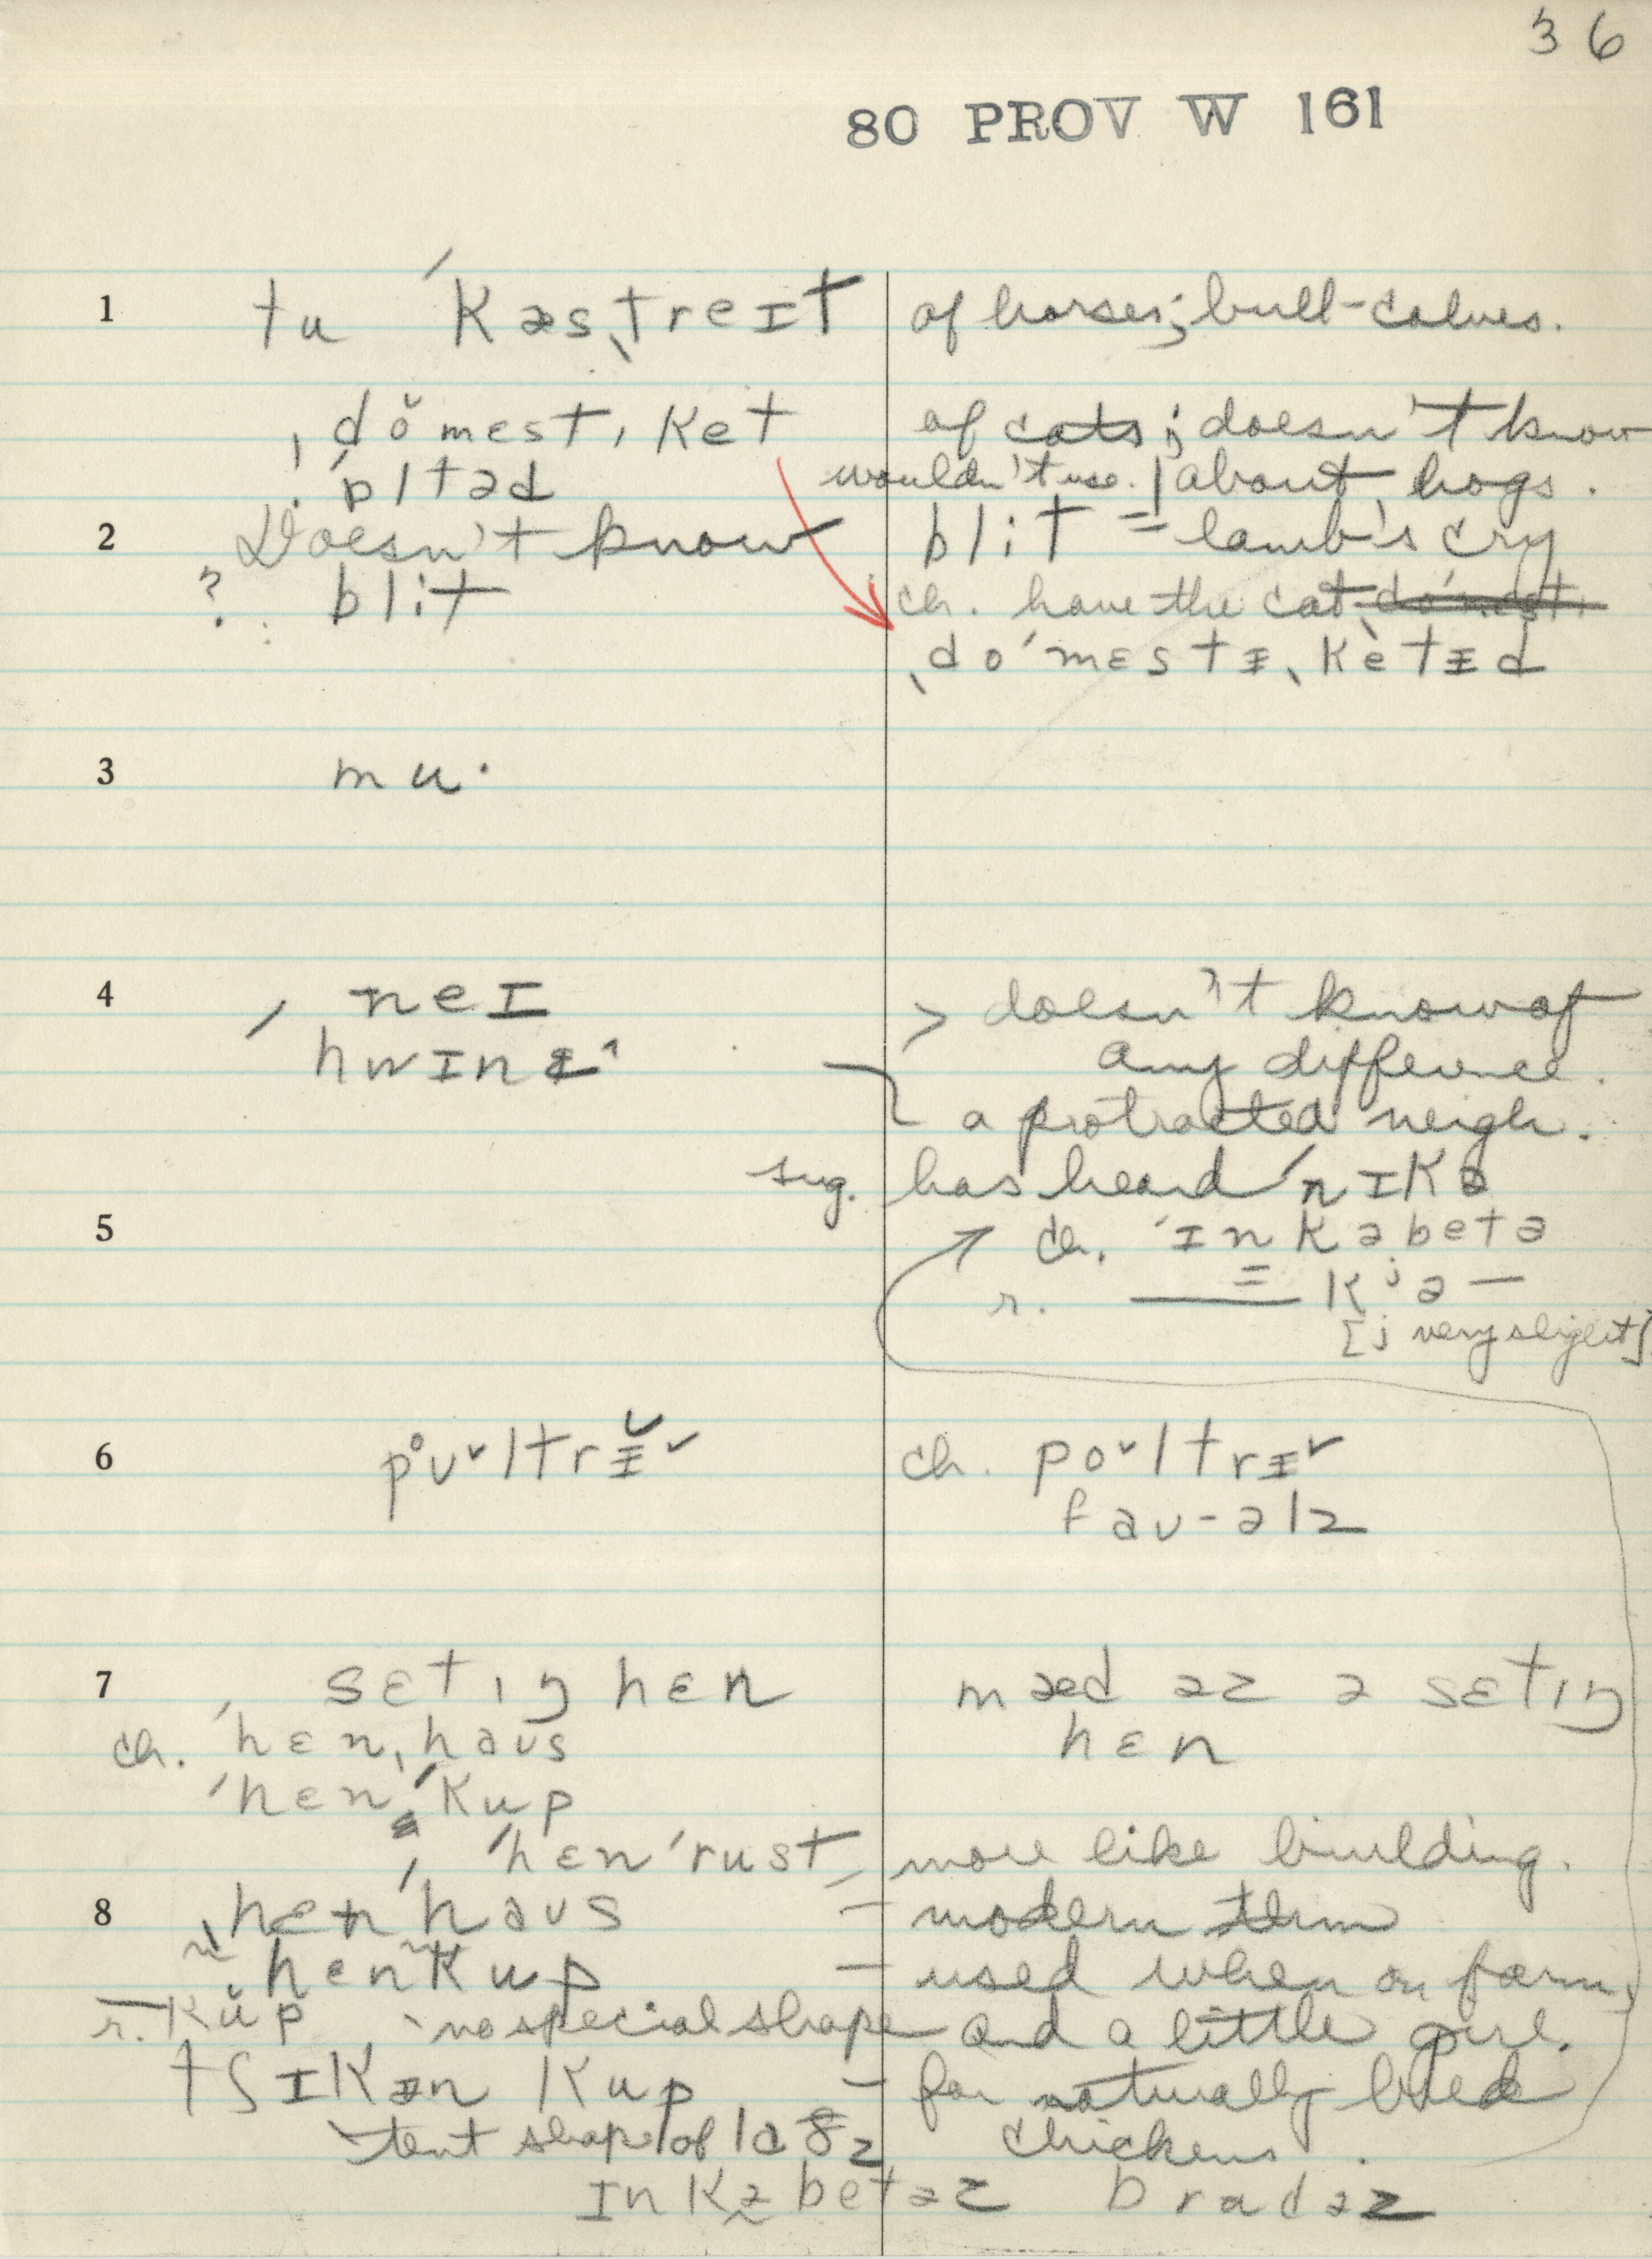 36
80 PROV W 161
1 tu ˈkæsˌtreɪt of horses; bull-calves.
ˌdŏmestˌket of cats; doesn't know
ˈɒltəd wouldn't use. | about hogs.
2 Doesn't know blit = lamb's cry
? blit ch. have the cat
ˎdoˈmɛstᵻˎkètᵻd
3 mu·
4 ˈneɪ > doesn't know of
hwɪnᵻ^ any difference.
a protracted neigh.
sug. has heard ˈnɪkə
5 ch. ˈɪnkəbetə
r. —— = kʲə —
[j very slight]
6 poʊ˅ltrᵻ˅ ch. po˅ltrᵻ˅
faʊ-əlz
7 ˈsɛtɪŋ hɛn mæd əz ə sɛtɪŋ
ch. ˈhɛnˌhaʊs hɛn
ˈhɛnˈkup
ˈhɛnˈrust, more like building.
8 hɛnˈhaʊs – modern term
hɛnkup – used when on farm,
r. —kŭp no special shape and a little girl.
tʃɪkᵻn kup – for naturally bred
tent shape of chickens.
ɪnkəbetəz brudəz